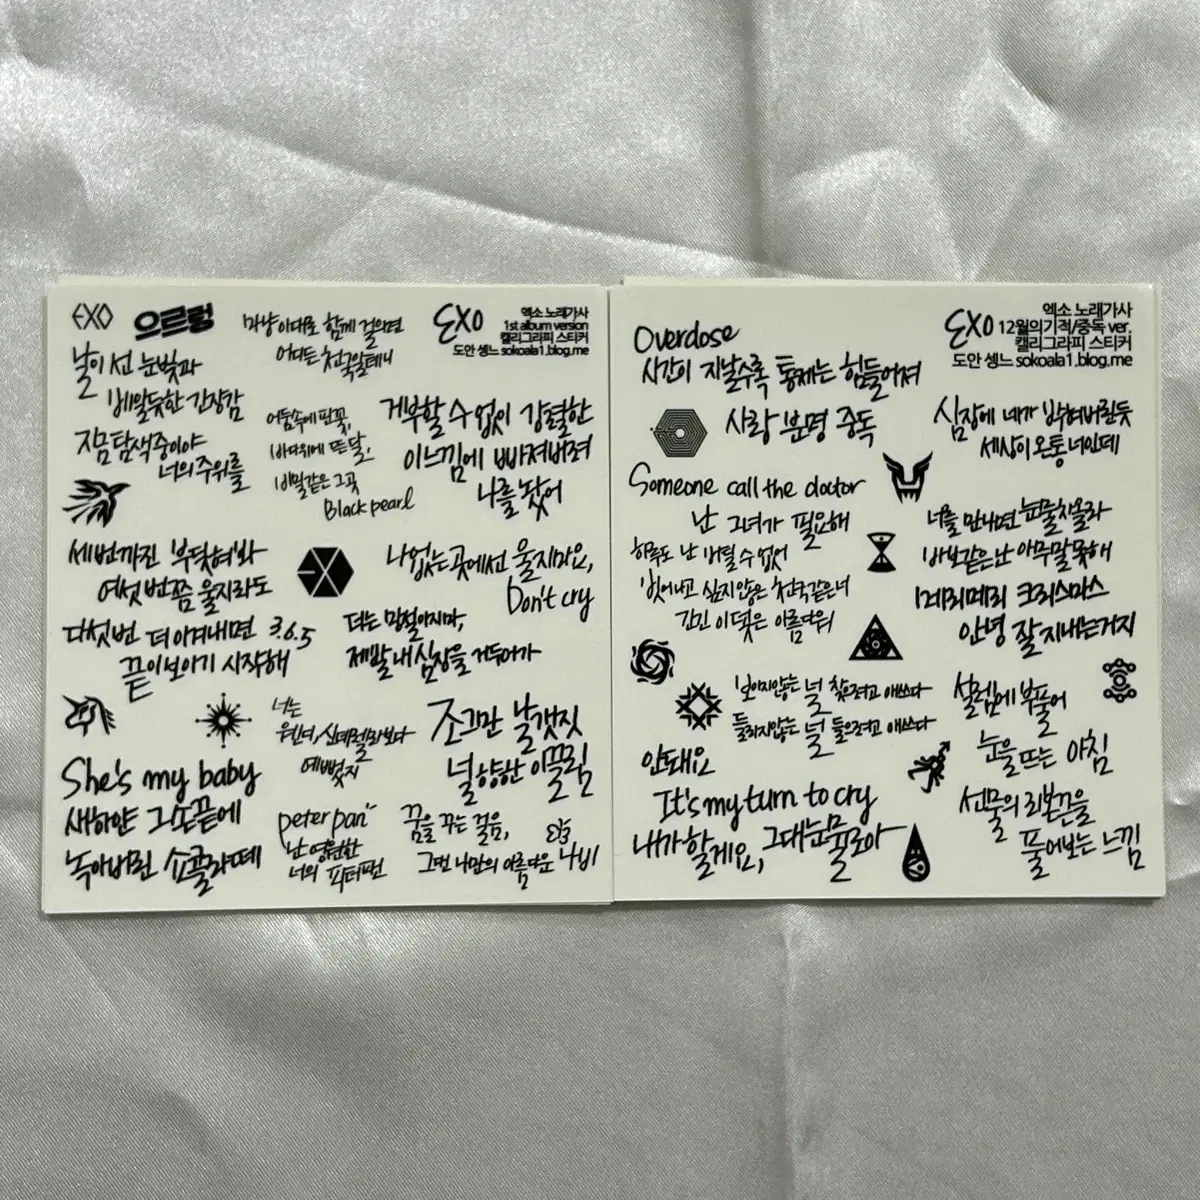 EXO 으르렁
마냥 이대로 함께 걸으면
어디든 천국일테니
EXO
엑소 노래가사
1st album version
캘리그라피 스티커
도안 셍느 sokoala1.blog.me
날이 선 눈빛과
베일듯한 긴장감
지금 탐색중이야
너의 주위를
어둠속에 핀 꽃,
바다위에 뜬 달,
비밀같은 그곳
Black pearl
거부할 수 없이 강렬한
이 느낌에 빠져버려
나를 놨어
세번까진 부딪혀봐
여섯 번쯤 울지라도
다섯번 더 이겨내면 3.6.5
끝이 보이기 시작해
나 없는 곳에선 울지마요,
Don't cry
더는 망설이지마,
제발 내 심장을 거두어가
너는
웬디, 신데렐라보다
예뻤지
조그만 날갯짓
널 향한 이끌림
She's my baby
새하얀 그 손끝에
녹아버린 쇼콜라떼
peter pan
난 영원한
너의 피터팬
꿈을 꾸는 걸음,
그댄 나만의 아름다운 나비
Overdose
시간이 지날수록 통제는 힘들어져
EXO
엑소 노래가사
12월의기적/중독 ver.
캘리그라피 스티커
도안 셍느 sokoala1.blog.me
사랑 분명 중독
심장에 네가 박혀버린듯
세상이 온통 너인데
Someone call the doctor
난 그녀가 필요해
하루도 난 버틸 수 없어
벗어나고 싶지 않은 천국같은 너
갇힌 이 덫은 아름다워
너를 만나면 눈물 차올라
바보같은 난 아무말 못해
메리메리 크리스마스
안녕 잘 지내는거지
보이지않는 널 찾으려고 애쓰다
들리지않는 널 들으려고 애쓰다
안돼요
It's my turn to cry
내가 할게요, 그대 눈물로아
설렘에 부풀어
눈을 뜨는 아침
선물의 리본끈을
풀어보는 느낌